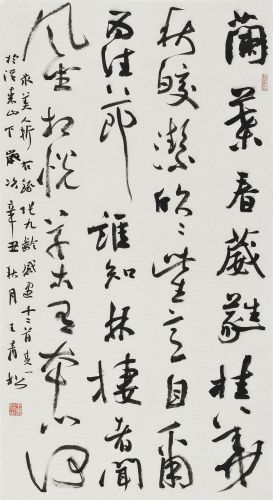 蘭葉春葳蕤桂華
秋皎潔欣〻此生意自爾
為佳節誰知林棲者聞
風坐相悅草木有本心何
求美人折 右錄張九齡感遇十二首其一
於東山下 歲次辛丑秋月 王青